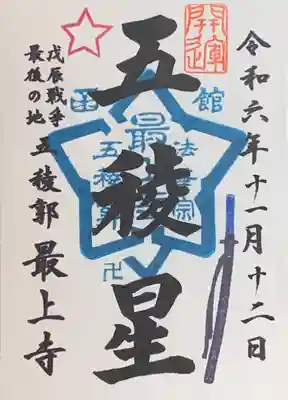 令和六年十一月十二日
開運
五稜星
函館
最
卍
戊辰戦争
最後の地
五稜郭 最上寺